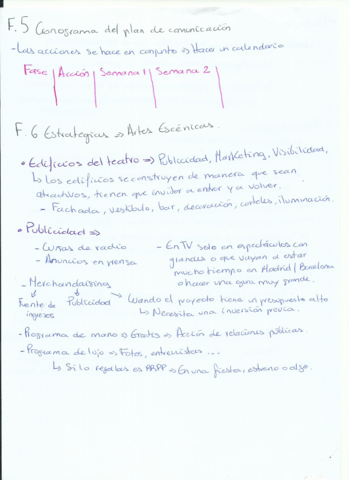 F.5 Cronograma del plan de comunicación
- Las acciones se hace en conjunto ⇒ Hacer un calendario
Fase | Acción | Semana 1 | Semana 2 |
F.6 Estrategias ⇒ Artes Escénicas.
• Edificios del teatro ⇒ Publicidad, Marketing, Visibilidad,
↳ los edificios se construyen de manera que sean
atractivos, tienen que invitar a entrar y a volver.
- Fachada, vestíbulo, bar, decoración, carteles, iluminación.
• Publicidad ⇒
- Cuñas de radio
- Anuncios en prensa
- En TV solo en espectáculos con
grandes o que vayan a estar
mucho tiempo en Madrid / Barcelona
o hacer una gira muy grande.
- Merchandising
Fuente de ingresos
Publicidad
Cuando el proyecto tiene un presupuesto alto
↳ Necesita una inversión previa.
- Programa de mano ⇒ Gratis ⇒ Acción de relaciones públicas
- Programa de lujo ⇒ Fotos, entrevistas ...
↳ Si lo regalas es RRPP ⇒ En una fiesta, estreno o algo.